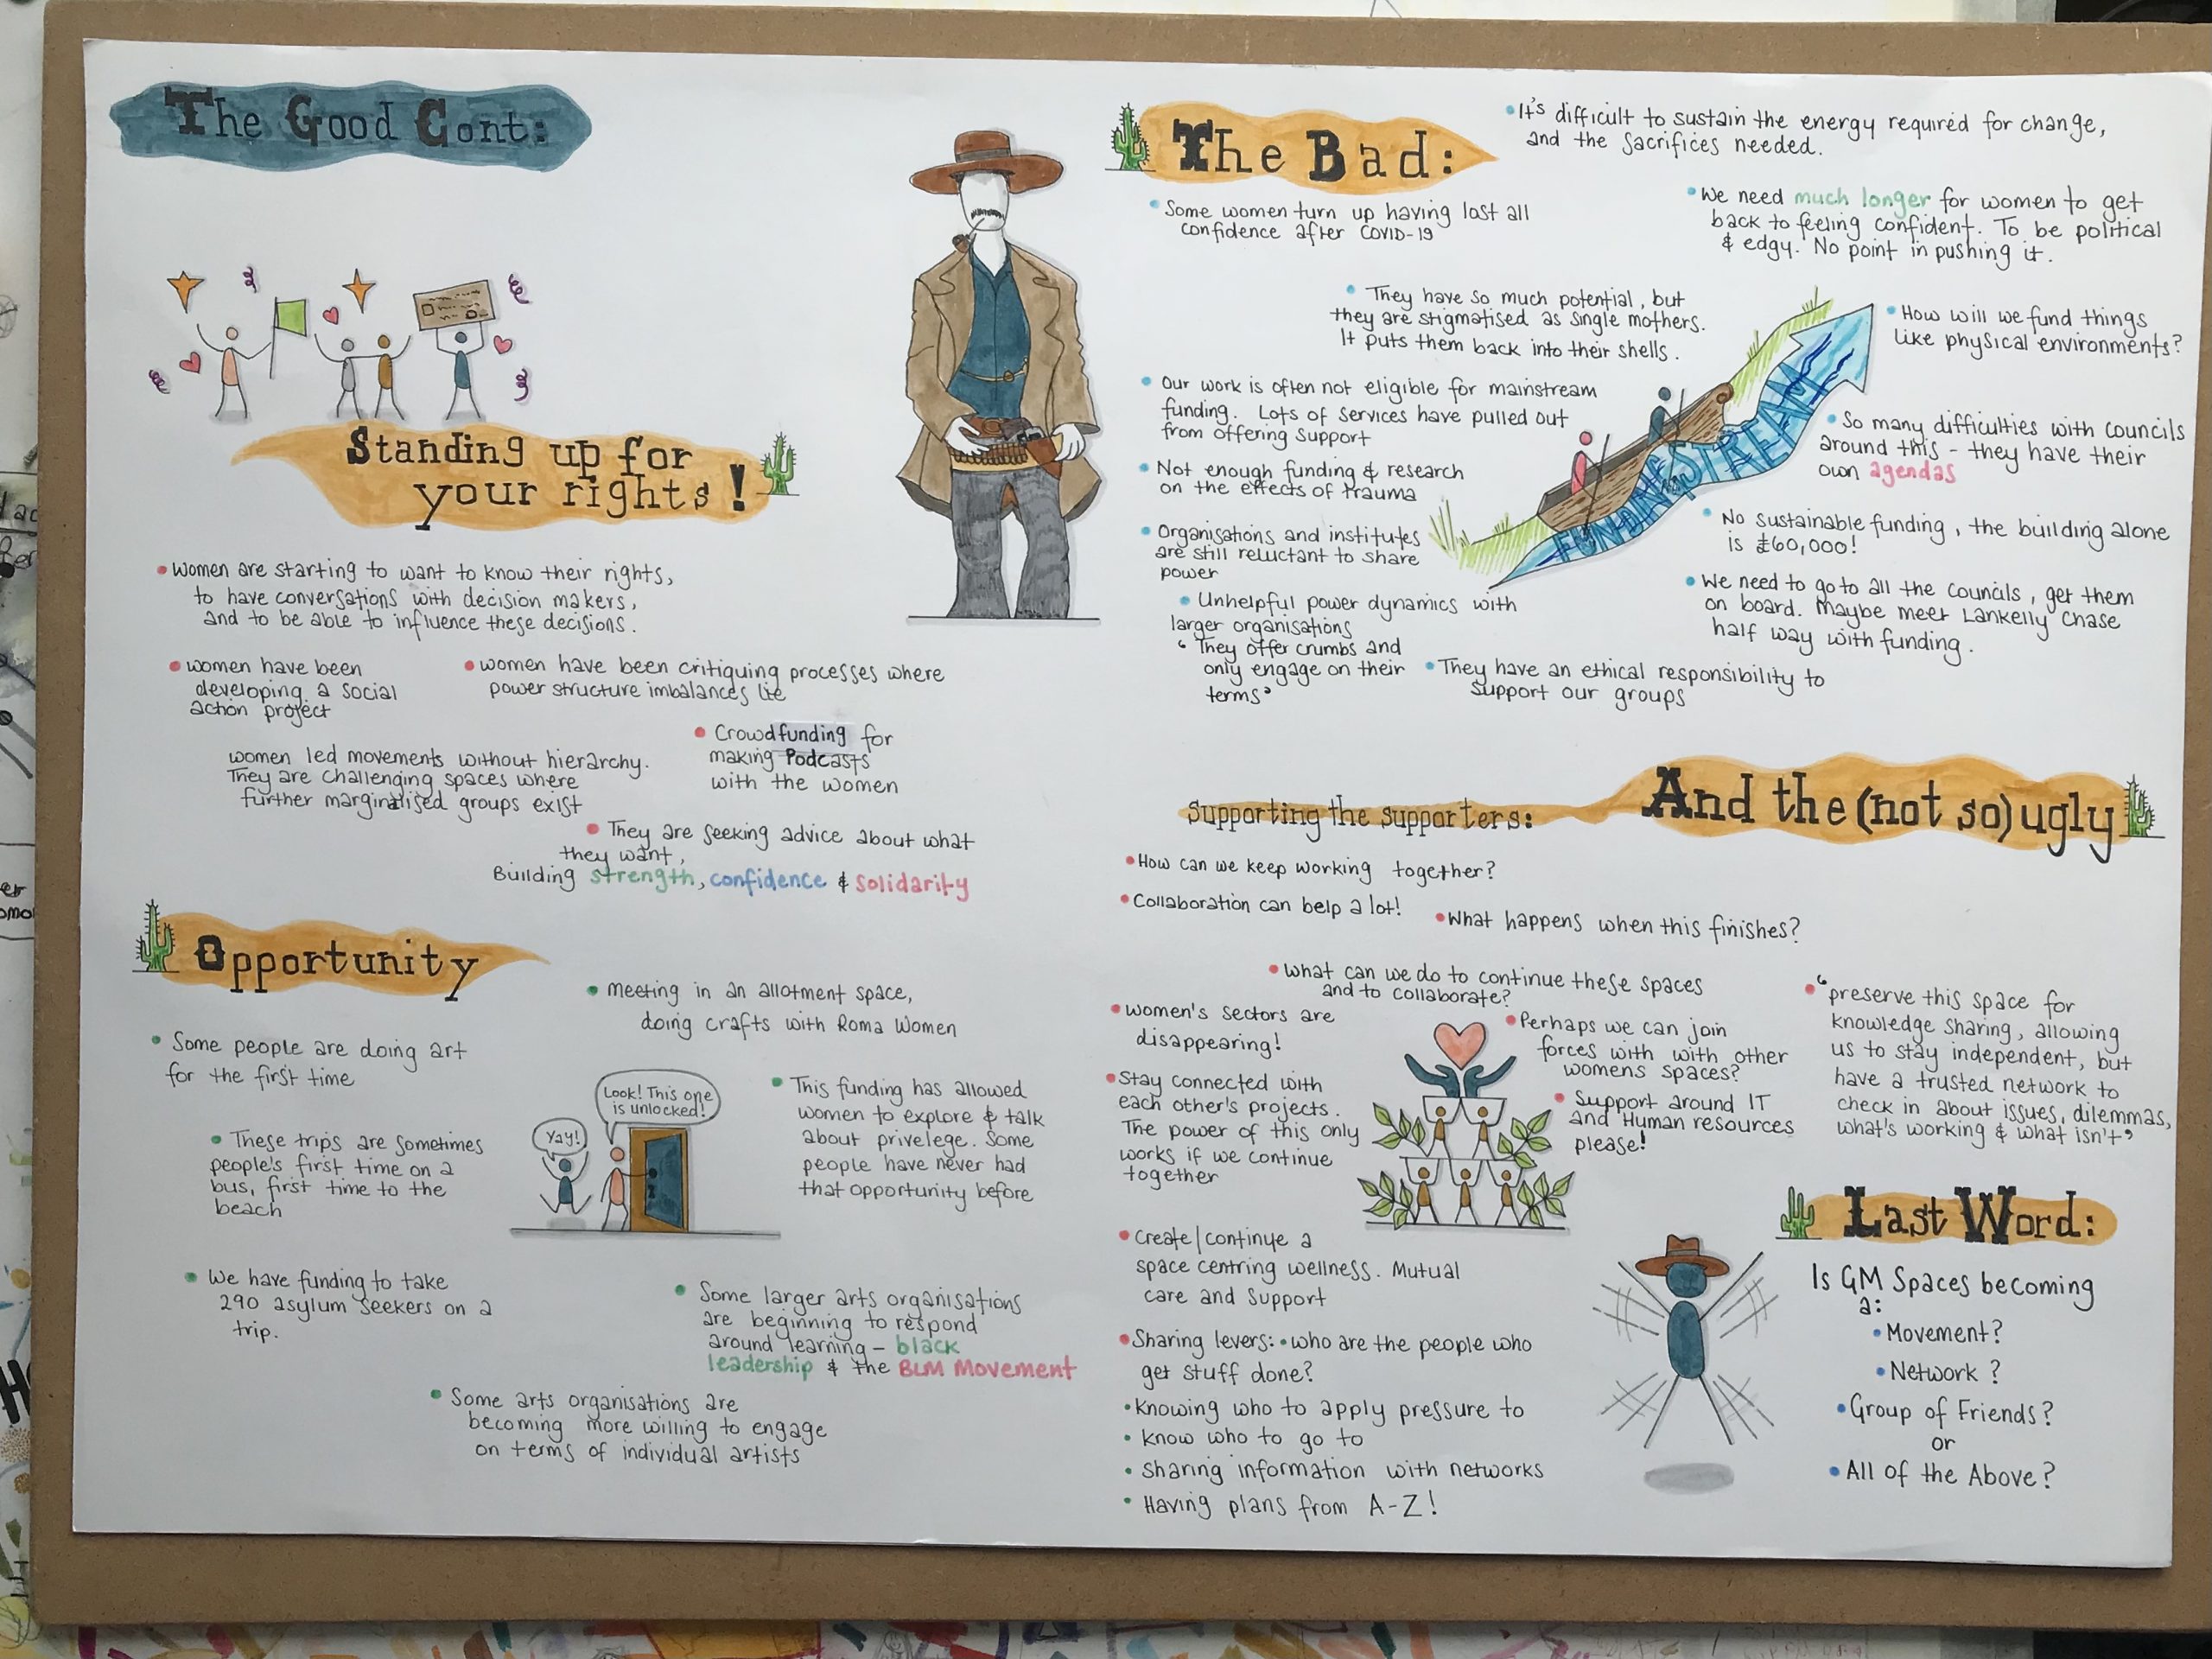 The Good Cont:
Standing up for
your rights!
women are starting to want to know their rights,
to have conversations with decision makers,
and to be able to influence these decisions.
women have been
developing a social
action project
women have been critiquing processes where
power structure imbalances lie
Crowdfunding for
making Podcasts
with the women
women led movements without hierarchy.
They are challenging spaces where
further marginalised groups exist
They are seeking advice about what
they want,
Building strength, confidence & solidarity
Opportunity
meeting in an allotment space,
doing crafts with Roma Women
Some people are doing art
for the first time
Look! This one
is unlocked!
Yay!
This funding has allowed
women to explore & talk
about privelege. Some
people have never had
that opportunity before
These trips are sometimes
people's first time on a
bus, first time to the
beach
We have funding to take
290 asylum seekers on a
trip.
Some larger arts organisations
are beginning to respond
around learning - black
leadership & the BLM Movement
Some arts organisations are
becoming more willing to engage
on terms of individual artists
The Bad:
It's difficult to sustain the energy required for change,
and the sacrifices needed.
Some women turn up having lost all
confidence after COVID-19
We need much longer for women to get
back to feeling confident. To be political
& edgy. No point in pushing it.
They have so much potential, but
they are stigmatised as single mothers.
It puts them back into their shells.
How will we fund things
like physical environments?
Our work is often not eligible for mainstream
funding. Lots of services have pulled out
from offering support
FUNDING STREAM
So many difficulties with councils
around this - they have their
own agendas
Not enough funding & research
on the effects of trauma
No sustainable funding, the building alone
is £60,000!
Organisations and institutes
are still reluctant to share
power
We need to go to all the councils, get them
on board. Maybe meet Lankelly Chase
half way with funding.
Unhelpful power dynamics with
larger organisations
"They offer crumbs and
only engage on their
terms"
They have an ethical responsibility to
support our groups
And the (not so) ugly
Supporting the supporters:
How can we keep working together?
Collaboration can help a lot!
What happens when this finishes?
What can we do to continue these spaces
and to collaborate?
women's sectors are
disappearing!
Perhaps we can join
forces with with other
womens spaces?
"preserve this space for
knowledge sharing, allowing
us to stay independent, but
have a trusted network to
check in about issues, dilemmas,
what's working & what isn't"
Stay connected with
each other's projects.
The power of this only
works if we continue
together
Support around IT
and Human resources
please!
Create/continue a
space centring wellness. Mutual
care and support
Sharing levers: • who are the people who
get stuff done?
• Knowing who to apply pressure to
• Know who to go to
• Sharing information with networks
• Having plans from A-Z!
Last Word:
Is GM Spaces becoming
a:
• Movement?
• Network?
• Group of Friends?
or
• All of the Above?